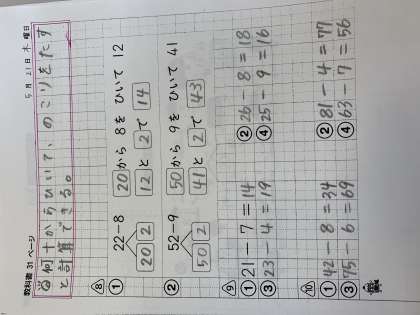 教科書 31 ページ 5月 21日 木 曜日
め 何十からひいて、のこりをたす
と計算できる。
8
① 22-8 20から 8を ひいて 12
20 2 12と 2で 14
② 52-9 50から 9を ひいて 41
50 2 41と 2で 43
9
① 21-7=14 ② 26-8=18
③ 23-4=19 ④ 25-9=16
10
① 42-8=34 ② 81-4=77
③ 75-6=69 ④ 63-7=56